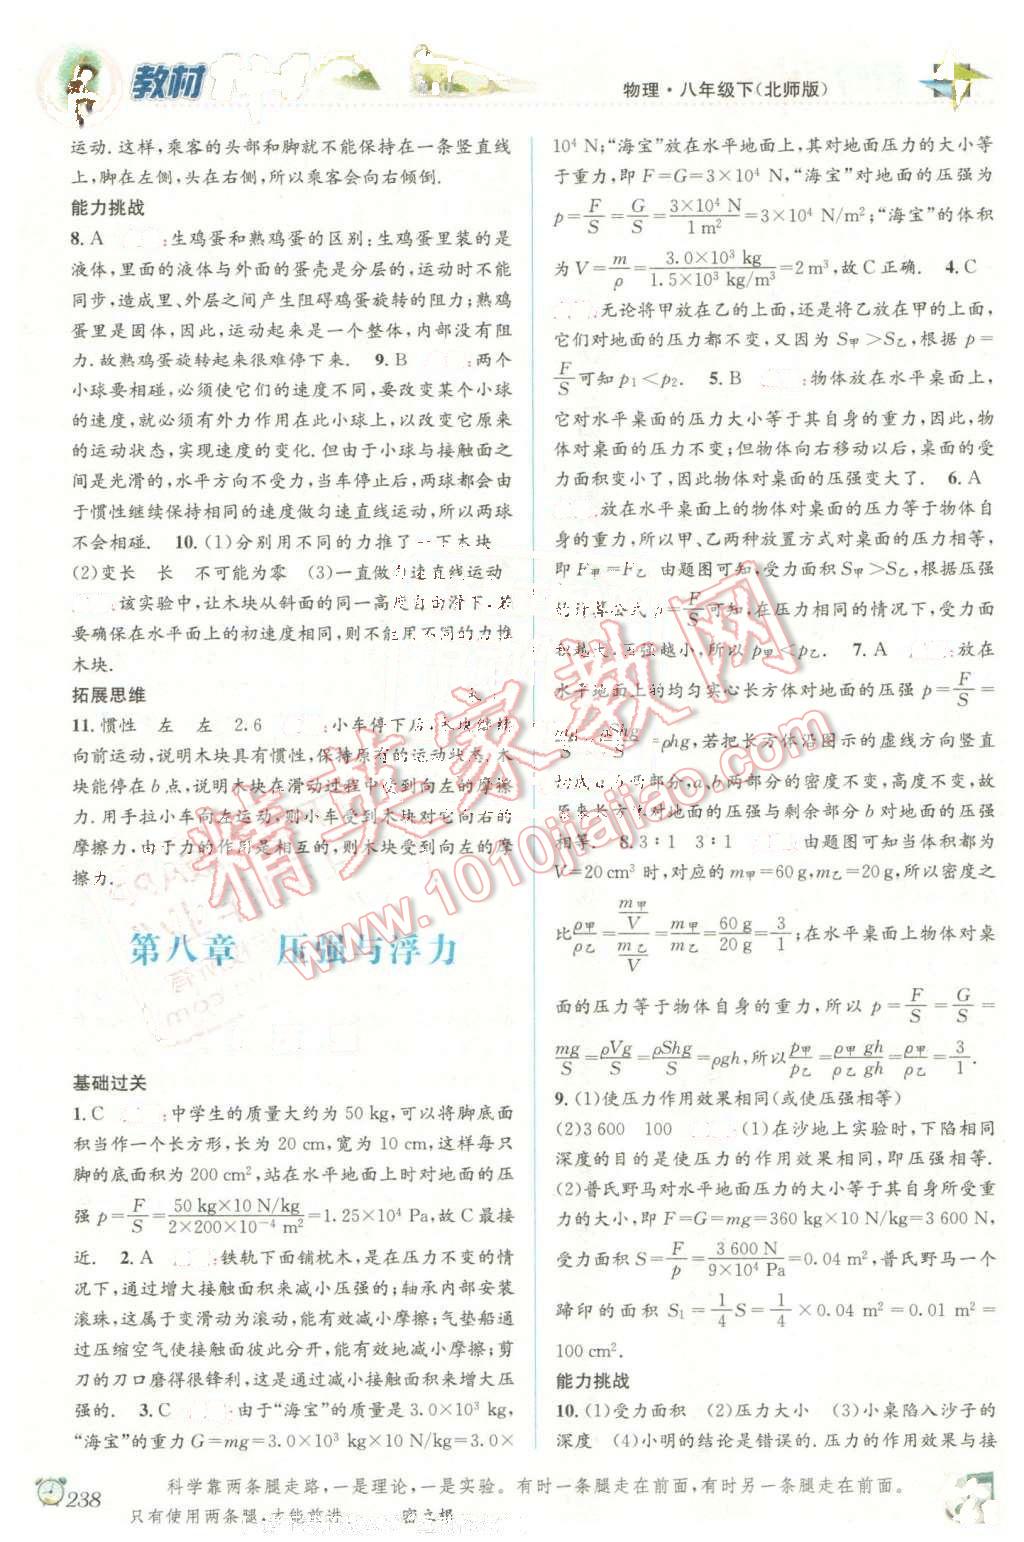 教材1+1
物理·八年级下(北师版)
运动.这样,乘客的头部和脚就不能保持在一条竖直线
上,脚在左侧,头在右侧,所以乘客会向右倾倒.
能力挑战
8. A :生鸡蛋和熟鸡蛋的区别:生鸡蛋里装的是
液体,里面的液体与外面的蛋壳是分层的,运动时不能
同步,造成里、外层之间产生阻碍鸡蛋旋转的阻力;熟鸡
蛋里是固体,因此,运动起来是一个整体,内部没有阻
力.故熟鸡蛋旋转起来很难停下来. 9. B :两个
小球要相碰,必须使它们的速度不同,要改变某个小球
的速度,就必须有外力作用在此小球上,以改变它原来
的运动状态,实现速度的变化.但由于小球与接触面之
间是光滑的,水平方向不受力,当车停止后,两球都会由
于惯性继续保持相同的速度做匀速直线运动,所以两球
不会相碰. 10. (1)分别用不同的力推了一下木块
(2)变长 长 不可能为零 (3)一直做匀速直线运动
:该实验中,让木块从斜面的同一高度自由滑下.若
要确保在水平面上的初速度相同,则不能用不同的力推
木块.
拓展思维
11. 惯性 左 左 2.6 :小车停下后,木块继续
向前运动,说明木块具有惯性,保持原有的运动状态.木
块能停在b点,说明木块在滑动过程中受到向左的摩擦
力.用手拉小车向左运动,则小车受到木块对它向右的
摩擦力,由于力的作用是相互的,则木块受到向左的摩
擦力.
第八章 压强与浮力
基础过关
1. C :中学生的质量大约为 50 kg,可以将脚底面
积当作一个长方形,长为 20 cm,宽为 10 cm,这样每只
脚的底面积为 200 cm²,站在水平地面上时对地面的压
强 p=F/S=50 kg×10 N/kg/2×200×10⁻⁴ m²=1.25×10⁴ Pa,故 C 最接
近. 2. A :铁轨下面铺枕木,是在压力不变的情
况下,通过增大接触面积来减小压强的;轴承内部安装
滚珠,这属于变滑动为滚动,能有效减小摩擦;气垫船通
过压缩空气使接触面彼此分开,能有效地减小摩擦;剪
刀的刀口磨得很锋利,这是通过减小接触面积来增大压
强的. 3. C :由于“海宝”的质量是 3.0×10³ kg,
“海宝”的重力 G=mg=3.0×10³ kg×10 N/kg=3.0×
10⁴ N;“海宝”放在水平地面上,其对地面压力的大小等
于重力,即 F=G=3×10⁴ N,“海宝”对地面的压强为
p=F/S=G/S=3×10⁴ N/1 m²=3×10⁴ N/m²;“海宝”的体积
为 V=m/ρ=3.0×10³ kg/1.5×10³ kg/m³=2 m³,故 C 正确. 4. C
:无论将甲放在乙的上面,还是将乙放在甲的上面,
它们对地面的压力都不变,又因为 S甲>S乙,根据 p=
F/S可知 p₁<p₂. 5. B :物体放在水平桌面上,
它对水平桌面的压力大小等于其自身的重力,因此,物
体对桌面的压力不变;但物体向右移动以后,桌面的受
力面积变小了,因此物体对桌面的压强变大了. 6. A
:放在水平桌面上的物体对桌面的压力等于物体自
身的重力,所以甲、乙两种放置方式对桌面的压力相等,
即 F甲=F乙 由题图可知,受力面积 S甲>S乙,根据压强
的计算公式 p=F/S可知,在压力相同的情况下,受力面
积越大,压强越小,所以 p甲<p乙. 7. A :放在
水平地面上的均匀实心长方体对地面的压强 p=F/S=
mg/S=ρShg/S=ρhg,若把长方体沿图示的虚线方向竖直
切成 a、b两部分,a、b两部分的密度不变,高度不变,故
原来长方体对地面的压强与剩余部分 b 对地面的压强
相等. 8. 3∶1 3∶1 :由题图可知当体积都为
V=20 cm³ 时,对应的 m甲=60 g,m乙=20 g,所以密度之
比ρ甲/ρ乙=(m甲/V)/(m乙/V)=m甲/m乙=60 g/20 g=3/1;在水平桌面上物体对桌
面的压力等于物体自身的重力,所以 p=F/S=G/S=
mg/S=ρVg/S=ρShg/S=ρgh,所以p甲/p乙=ρ甲gh/ρ乙gh=ρ甲/ρ乙=3/1.
9. (1)使压力作用效果相同(或使压强相等)
(2)3 600 100 :(1)在沙地上实验时,下陷相同
深度的目的是使压力的作用效果相同,即压强相等.
(2)普氏野马对水平地面压力的大小等于其自身所受重
力的大小,即 F=G=mg=360 kg×10 N/kg=3 600 N,
受力面积 S=F/p=3 600 N/9×10⁴ Pa=0.04 m²,普氏野马一个
蹄印的面积 S₁=1/4S=1/4×0.04 m²=0.01 m²=
100 cm².
能力挑战
10. (1)受力面积 (2)压力大小 (3)小桌陷入沙子的
深度 (4)小明的结论是错误的.压力的作用效果与接
238
科学靠两条腿走路,一是理论,一是实验。有时一条腿走在前面,有时另一条腿走在前面。
只有使用两条腿,才能前进 密立根
精英家教网
www.1010jiajiao.com